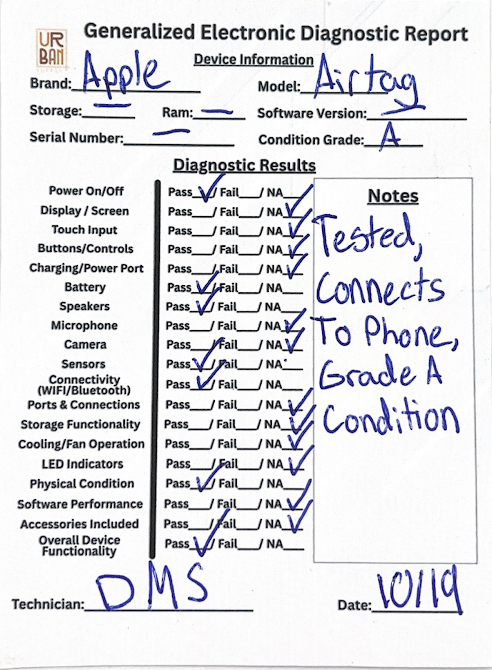 UR
BAN
Generalized Electronic Diagnostic Report
Device Information
Brand: Apple Model: Airtag
Storage: — Ram: — Software Version: —
Serial Number: — Condition Grade: A
Diagnostic Results
Power On/Off Pass ✓ / Fail___/ NA___
Display / Screen Pass___/ Fail___/ NA ✓
Touch Input Pass___/ Fail___/ NA ✓
Buttons/Controls Pass___/ Fail___/ NA ✓
Charging/Power Port Pass___/ Fail___/ NA ✓
Battery Pass ✓ / Fail___/ NA___
Speakers Pass ✓ / Fail___/ NA___
Microphone Pass___/ Fail___/ NA ✓
Camera Pass___/ Fail___/ NA ✓
Sensors Pass ✓ / Fail___/ NA___
Connectivity
(WIFI/Bluetooth) Pass ✓ / Fail___/ NA___
Ports & Connections Pass___/ Fail___/ NA ✓
Storage Functionality Pass___/ Fail___/ NA ✓
Cooling/Fan Operation Pass___/ Fail___/ NA ✓
LED Indicators Pass___/ Fail___/ NA ✓
Physical Condition Pass ✓ / Fail___/ NA___
Software Performance Pass___/ Fail___/ NA ✓
Accessories Included Pass___/ Fail___/ NA ✓
Overall Device
Functionality Pass ✓ / Fail___/ NA___
Notes
Tested,
Connects
To Phone,
Grade A
Condition
Technician: DMS Date: 10/19